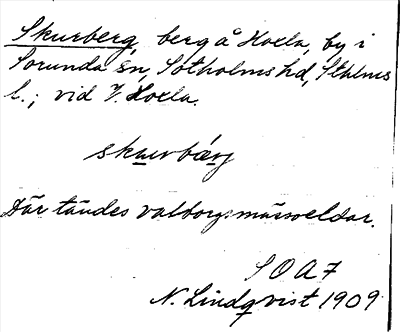 Skurberg, berg å Hoxla, by i
Sorunda sn, Sotholms hd, Sthlms
l.; vid V. Hoxla.
skurbärj
Där tändes valborgsmässeldar.
S O A 7
N. Lindqvist 1909